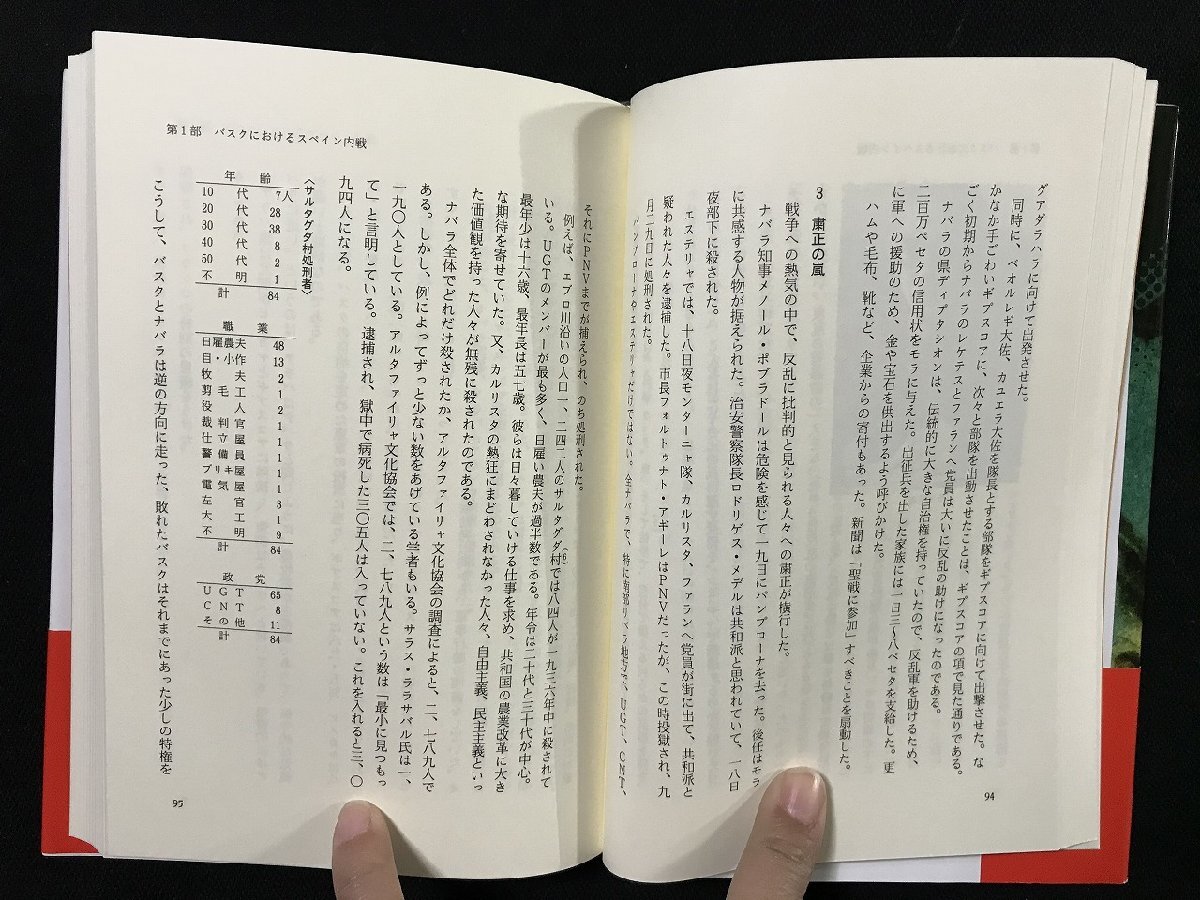 グアダラハラに向けて出発させた。
同時に、ベオルレギ大佐、カユエラ大佐を隊長とする部隊をギプスコアに向けて出撃させた。な
かなか手ごわいギプスコアに、次々と部隊を出動させたことは、ギプスコアの項で見た通りである。
ごく初期からナバラのレケテスとファランヘ党員は大いに反乱の助けになったのである。
ナバラの県ディプタシオンは、伝統的に大きな自治権を持っていたので、反乱軍を助けるため、
二百万ペセタの信用状をモラに与えた。出征兵を出した家族には一日三〜八ペセタを支給した。更
に軍への援助のため、金や宝石を供出するよう呼びかけた。
ハムや毛布、靴など、企業からの寄付もあった。新聞は「聖戦に参加」すべきことを扇動した。
3 粛正の嵐
戦争への熱気の中で、反乱に批判的と見られる人々への粛正が横行した。
ナバラ知事メノール・ポブラドールは危険を感じて一九日にパンプローナを去った。後任はモラ
に共感する人物が据えられた。治安警察隊長ロドリゲス・メデルは共和派と思われていて、一八日
夜部下に殺された。
エステリャでは、十八日夜モンターニャ隊、カルリスタ、ファランヘ党員が街に出て、共和派と
疑われた人々を逮捕した。市長フォルトゥナト・アギーレはPNVだったが、この時投獄され、九
月二九日に処刑された。
パンプローナやエステリャだけではない。全ナバラで、特に南部リベラ地方で、UGT、CNT、
94
第1部 バスクにおけるスペイン内戦
それにPNVまでが捕えられ、のち処刑された。
例えば、エブロ川沿いの人口一、二四二人のサルタグダ村では八四人が一九三六年中に殺されて
いる。UGTのメンバーが最も多く、日雇い農夫が過半数である。年令は二十代と三十代が中心。
最年少は十六歳、最年長は五七歳。彼らは日々暮していける仕事を求め、共和国の農業改革に大き
な期待を寄せていた。又、カルリスタの熱狂にまどわされなかった人々、自由主義、民主主義といっ
た価値観を持った人々が無残に殺されたのである。
ナバラ全体でどれだけ殺されたか、アルタファイリャ文化協会の調査によると、二、七八九人で
ある。しかし、例によってずっと少ない数をあげている学者もいる。サラス・ララサバル氏は一、
一九〇人としている。アルタファイリャ文化協会では、二、七八九人という数は「最小に見つもっ
て」と言明している。逮捕され、獄中で病死した三〇五人は入っていない。これを入れると三、〇
九四人になる。
〈サルタグダ村処刑者〉
年齢
10代 7人
20代 28
30代 38
40代 8
50代 2
不明 1
計 84
職業
日雇農夫 48
自・小作 13
牧夫 2
剪毛工 1
没人 2
裁判官 1
仕立屋 1
警備員 1
ブリキ屋 1
電気屋 1
左官
大工
不明 9
計 84
政党
UGT 65
CNT 8
その他 11
計 84
こうして、バスクとナバラは逆の方向に走った、敗れたバスクはそれまでにあった少しの特権を
95